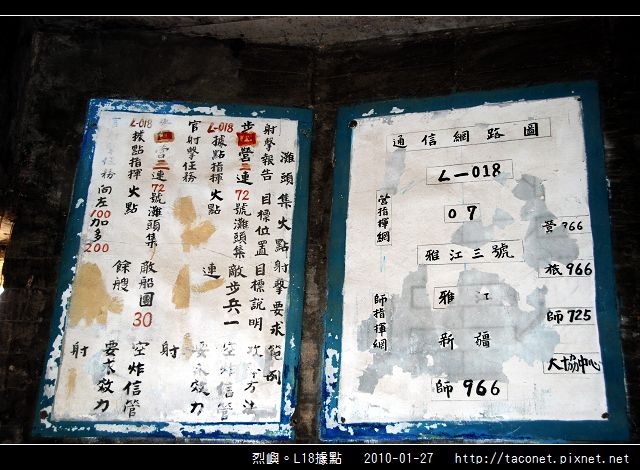 灘頭集火點射擊要求範例
射擊報告 目標位置 目標說明 攻擊方法
步 營二連72號灘頭集 敵步兵一 空炸信管
L-018據點指揮火點 連 要求效力
官射擊任務 射
營二連72號灘頭集 敵船團30 空炸信管
L-018據點指揮火點 餘艘 要求效力
任務 向左100加多200 射
通信網路圖
L-018
營指揮網
07
營966
雅江三號
旅966
師指揮網
雅江
師725
新疆
大協中心
師966
烈嶼。L18據點 2010-01-27 http://taconet.pixnet.net/blog